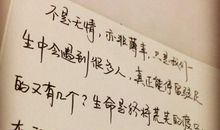 不是无情，亦非薄幸，只是我们一
生中会遇到很多人，真正能停留驻足
的又有几个？生命是终将荒芜的渡口